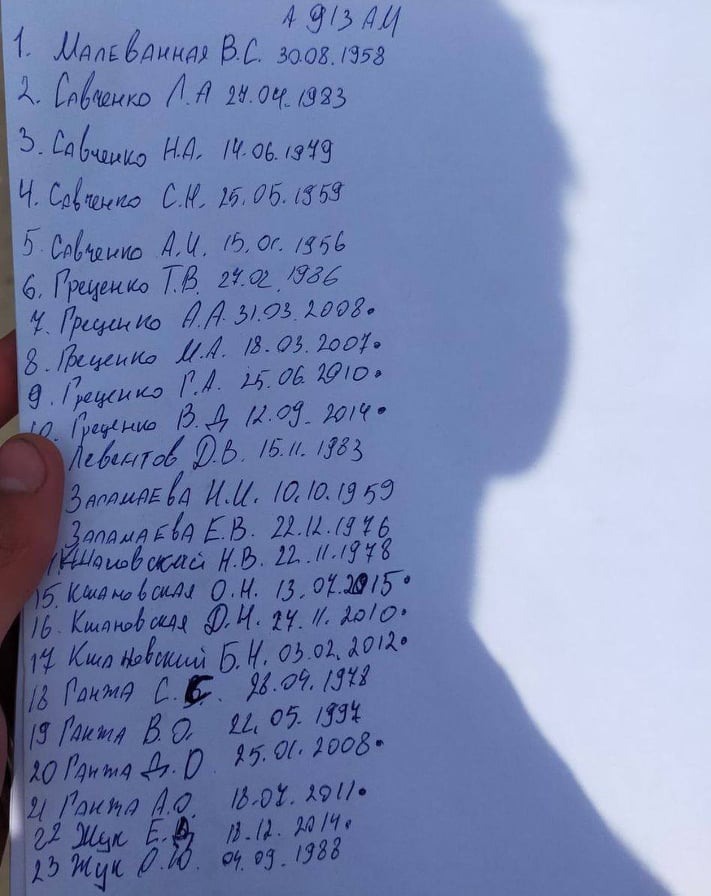 АЯІЗАМ
1. Малеванная В.С. 30.08.1958
2. Савченко Л.А 27.04.1983
3. Савченко Н.А. 14.06.1979
4. Савченко С.Н. 25.05.1959
5. Савченко А.И. 15.01.1956
6. Греценко Т.В. 27.02.1986
7. Греценко А.А. 31.03.2008.
8. Греценко М.А. 18.03.2007.
9. Греценко Г.А. 25.06.2010.
10. Греценко В.Д 12.09.2014.
Левентов Д.В. 15.11.1983
Заламаева Н.И. 10.10.1959
Заламаева Е.В. 22.12.1976
Кшановский Н.В. 22.11.1978
15. Кшановская О.Н. 13.07.2015.
16. Кшановская Д.Н. 27.11.2010.
17 Кшановский Б.Н. 03.02.2012.
18 Ганжа С. 28.09.1978
19 Ганжа В.О. 22.05.1997
20 Ганжа Д.О 25.01.2008.
21 Ганжа А.О. 18.07.2011.
22 Жук Е. 18.12.2014.
23 Жук О.Ю. 04.09.1988